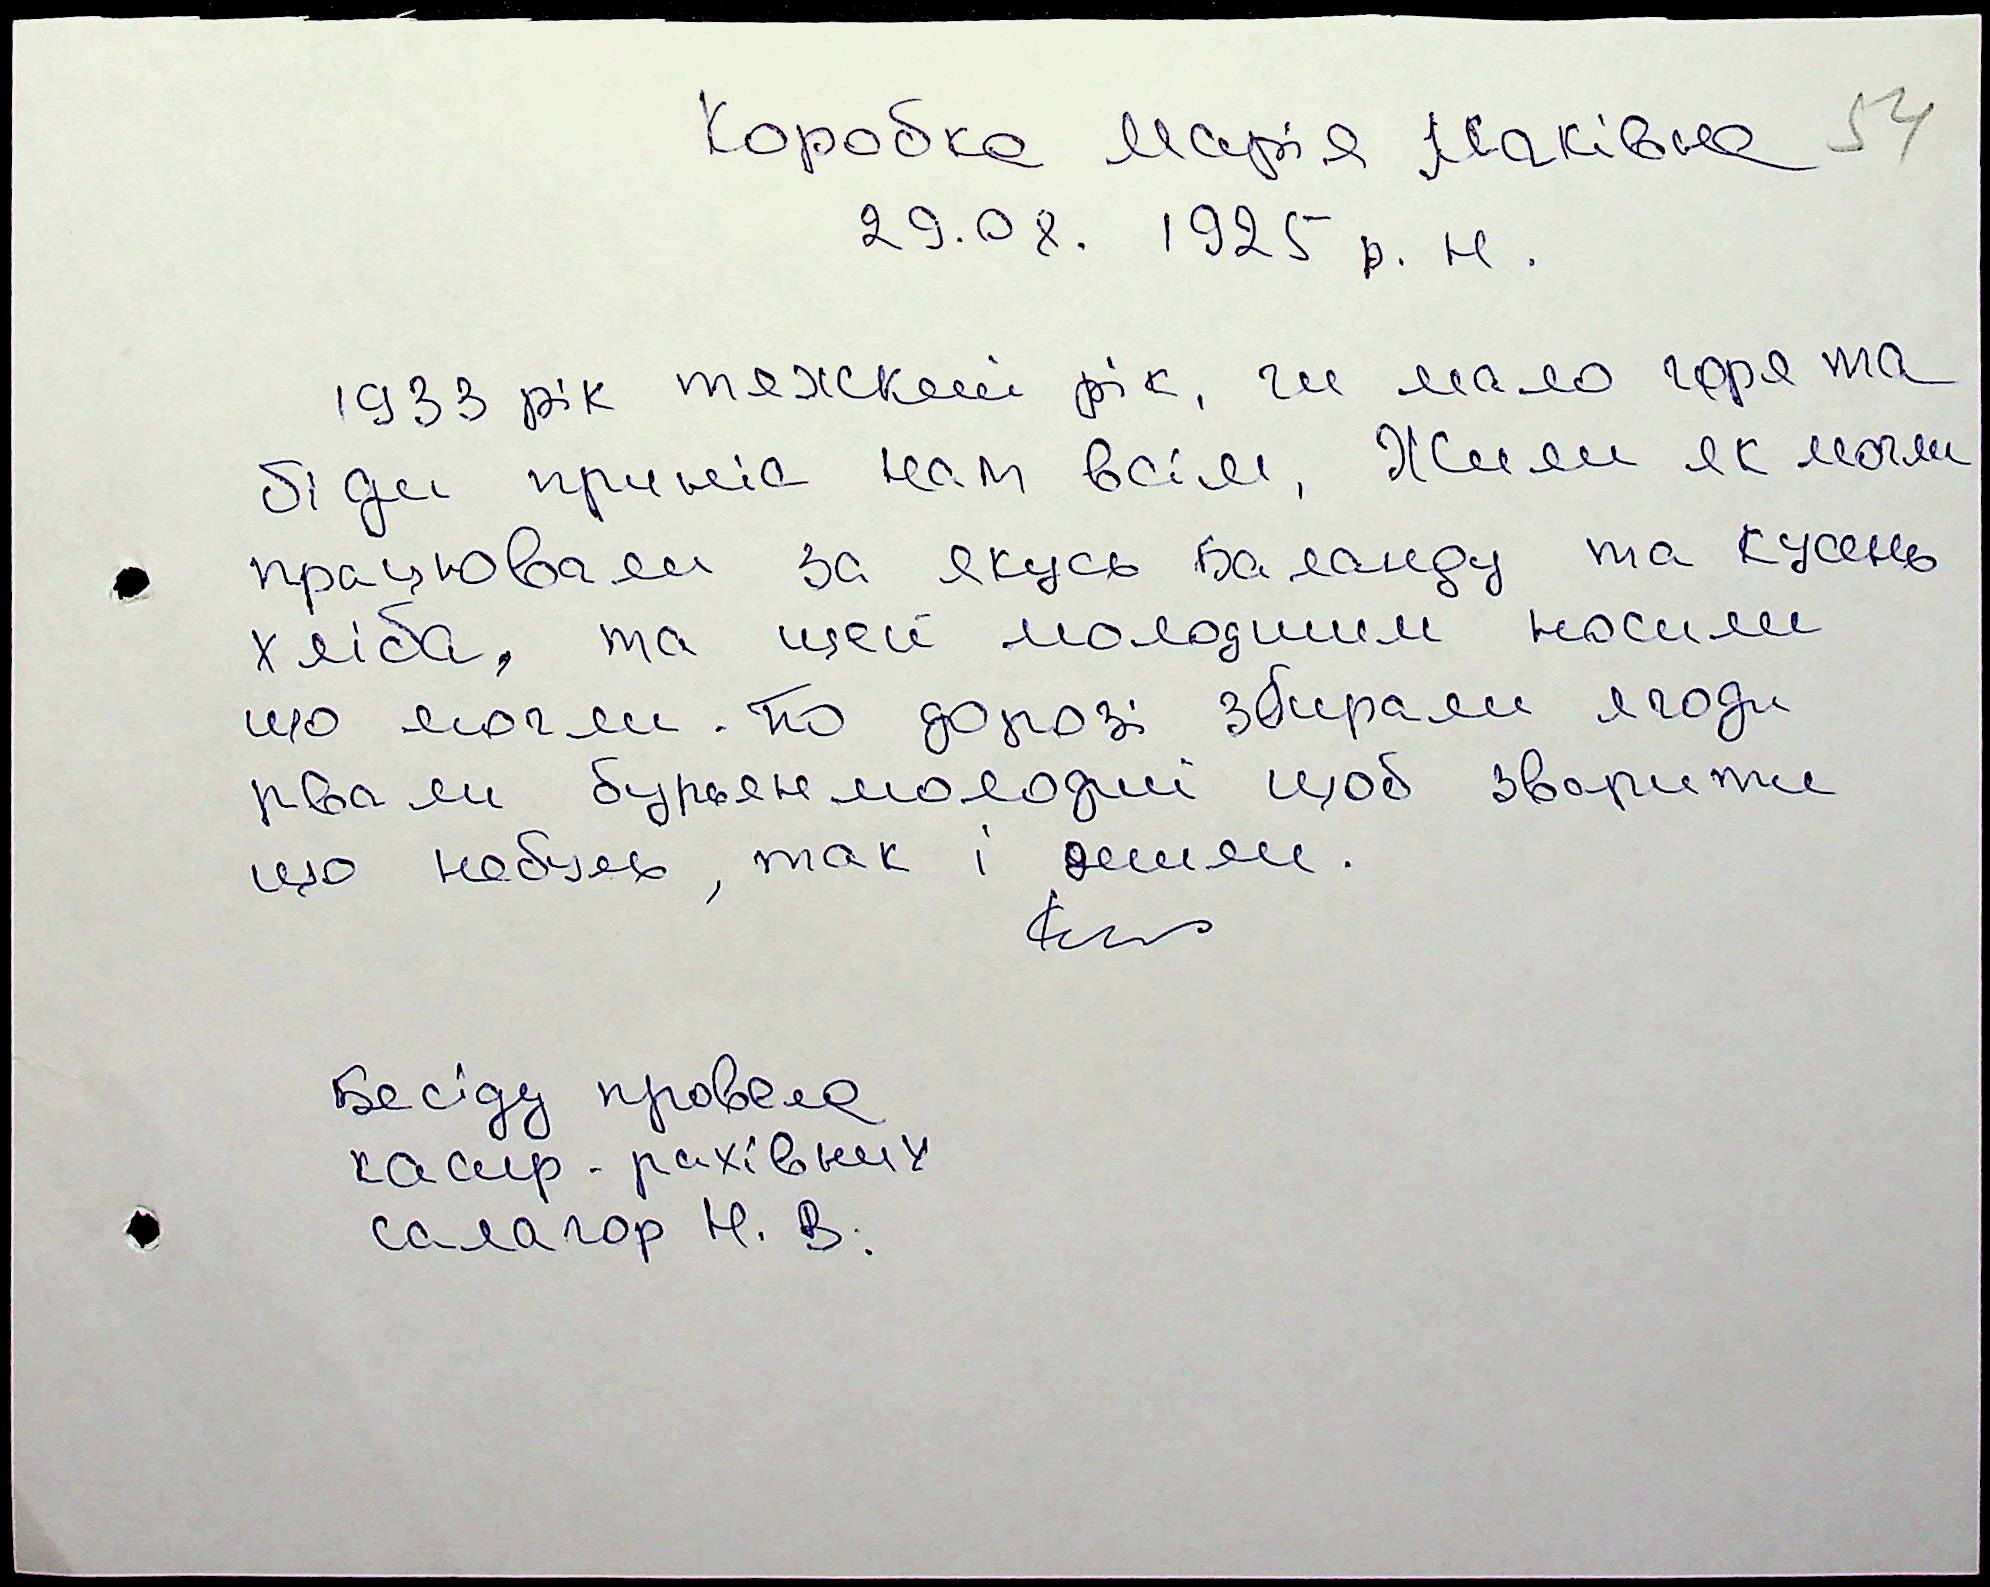 Коробка Марія Яківна 54
29.08. 1925 р. н.
1933 рік тяжкий рік, чи мало горя та
біди приніс нам всім, Жили як могли
працювали за якусь баланду та кусень
хліба, та щей молодшим носили
що могли. По дорозі збирали ягоди
рвали бурьян молодий щоб зварити
що небудь, так і жили.
Бесіду провела
касир - рахівник
салагор Н. В.